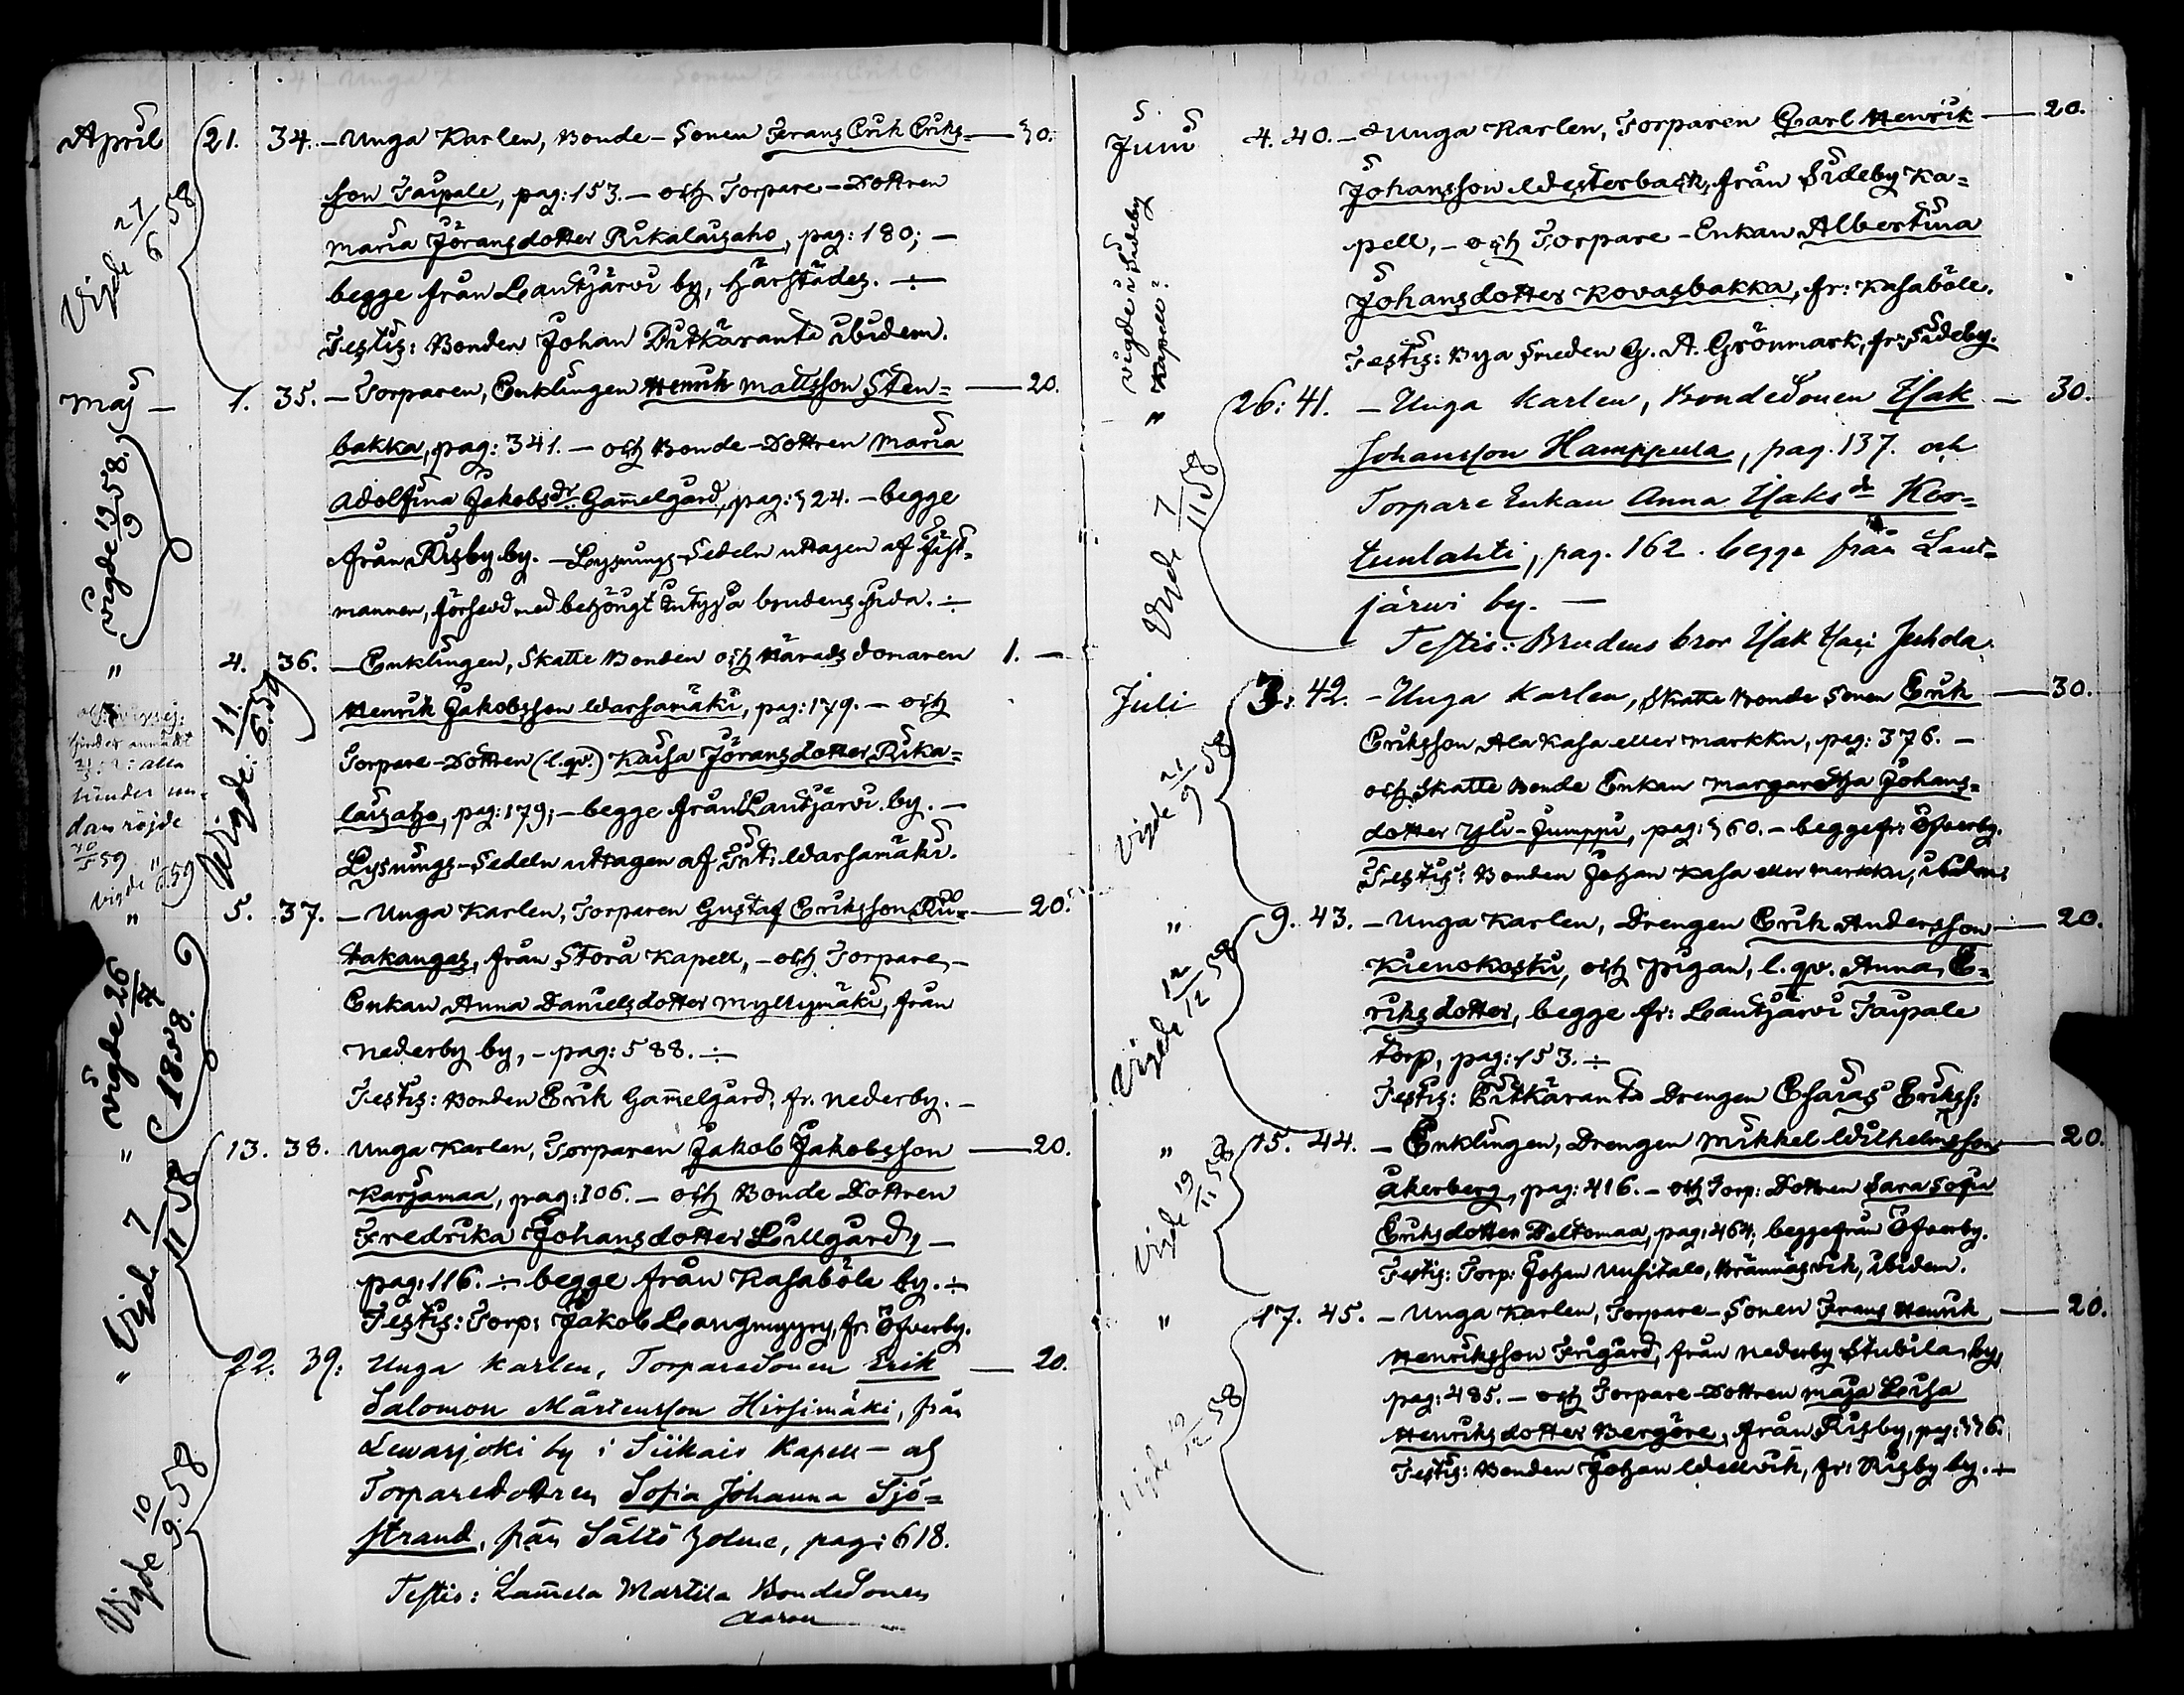 April 21. 34. – Unga Karlen, Bonde-Sonen Frans Erik Eriks- — 30.
son Taipale, pag: 153. – och Torpare-Dottren
Maria Jöransdotter Riikalaisaho, pag: 180; –
begge från Lautjärvi by, härstädes. ÷
Testis: Bonden Johan Pitkäranta ibidem.
Vigde 27/6 58
Maj – 1. 35. – Torparen, Enklingen Henrik Mattsson Sten- — 20.
bakka, pag: 341. – och Bonde-Dottren Maria
Adolfina Jakobsdr. Gam̄elgård, pag: 324. – begge
från Risby by. – Lysnings-Sedeln uttagen af Fäst-
mannen, försedd med behörigt intyg å brudens sida. ÷
Vigde 19/9 58.
" 4. 36. – Enklingen, Skatte Bonden och Häradsdomaren 1. –
Henrik Jakobsson Warsamäki, pag: 179. – och
Torpare-Dottren (l.qv.) Kaisa Jöransdotter Riika-
laisaho, pag: 179; – begge från Lautjärvi by. –
Lysnings-Sedeln uttagen af Warsamäki.
hinder anmäldt
alla
hinder
dan röjde
59
vigde
59
Vigde: 11/6 59
" 5. 37. – Unga Karlen, Torparen Gustaf Eriksson Rii- — 20.
takangas, från Storå Kapell, – och Torpare-
Enkan Anna Danielsdotter Myllymäki, från
Nederby by, – pag: 588. ÷
Testis: Bonden Erik Gam̄elgård, fr. Nederby. –
Vigde 26/ 1858.
" 13. 38. Unga Karlen, Torparen Jakob Jakobsson — 20.
Karjamaa, pag: 106. – och Bonde Dottren
Fredrika Johansdotter Lillgård, –
pag: 116. ÷ begge från Kasaböle by. ÷
Testis: Torp: Jakob Langmyyry, fr: Öfverby.
Vigde 7/11 58
" 22. 39: Unga Karlen, TorpareSonen Erik — 20.
Salomon Mårtensson Hirsimäki, från
Lewasjoki by i Siikais Kapell – och
TorpareDottren Sofia Johanna Sjö-
strand, från Sältö holme, pag: 618.
Testis: Lam̄ela Martila BondeSonen
Aaron
Vigde 10/9 58
Juni 4. 40. – Unga Karlen, Torparen Carl Henrik — 20.
Johansson Westerback, från Sideby Ka-
pell, – och Torpare-Enkan Albertina
Johansdotter Kovasbakka, fr: Kasaböle.
Testis: Bya Smeden G. A. Grönmark, fr: Sideby.
Vigde i Sideby
Kapell.
" 26: 41. – Unga Karlen, BondeSonen Isak — 30.
Johansson Hamppula, pag. 137. och
Torpare Enkan Anna Isaksdr Kor-
tunlahti, pag. 162. begge från Laut-
järwi by. –
Testis: Brudens bror Isak Isaci Juhola.
Vigde 7/11 58
Juli 3: 42. – Unga Karlen, Skatte Bonde Sonen Erik — 30.
Eriksson Ala Kasa eller Markku, pag: 376. –
och Skatte Bonde Enkan Margaretha Johans-
dotter Yli-Jumppi, pag: 360. – begge fr: Öfverby.
Testis: Bonden Johan Kasa eller Markku, ibidem:
Vigde 21/9 58
" 9. 43. – Unga Karlen, Drengen Erik Andersson — 20.
Kienokoski, och Pigan, l. qv. Anna, E-
riksdotter, begge fr: Lautjärvi Taipale
torp, pag: 153. ÷
Testis: Pitkäranta Drengen Esaias Eriks:
Vigde 12/12 58
" 15. 44. – Enklingen, Drengen Mikkel Wilhelmsson — 20.
Åkerberg, pag: 416. – och Torp: Dottren Sara Sofia
Eriksdotter Peltomaa, pag: 464; begge från Öfverby.
Testis: Torp: Johan Uusitalo, Brännäsvik, ibidem.
Vigde 19/11 58
" 17. 45. – Unga Karlen, Torpare-Sonen Frans Henrik — 20.
Henriksson Frigård, från Nederby Stubila by,
pag: 485. – och Torpare-Dottren Maja Lisa
Henriksdotter Bergöre, från Risby, pag: 336.
Testis: Bonden Johan Wellvik, fr: Risby by. ÷
Vigde 19/12 58